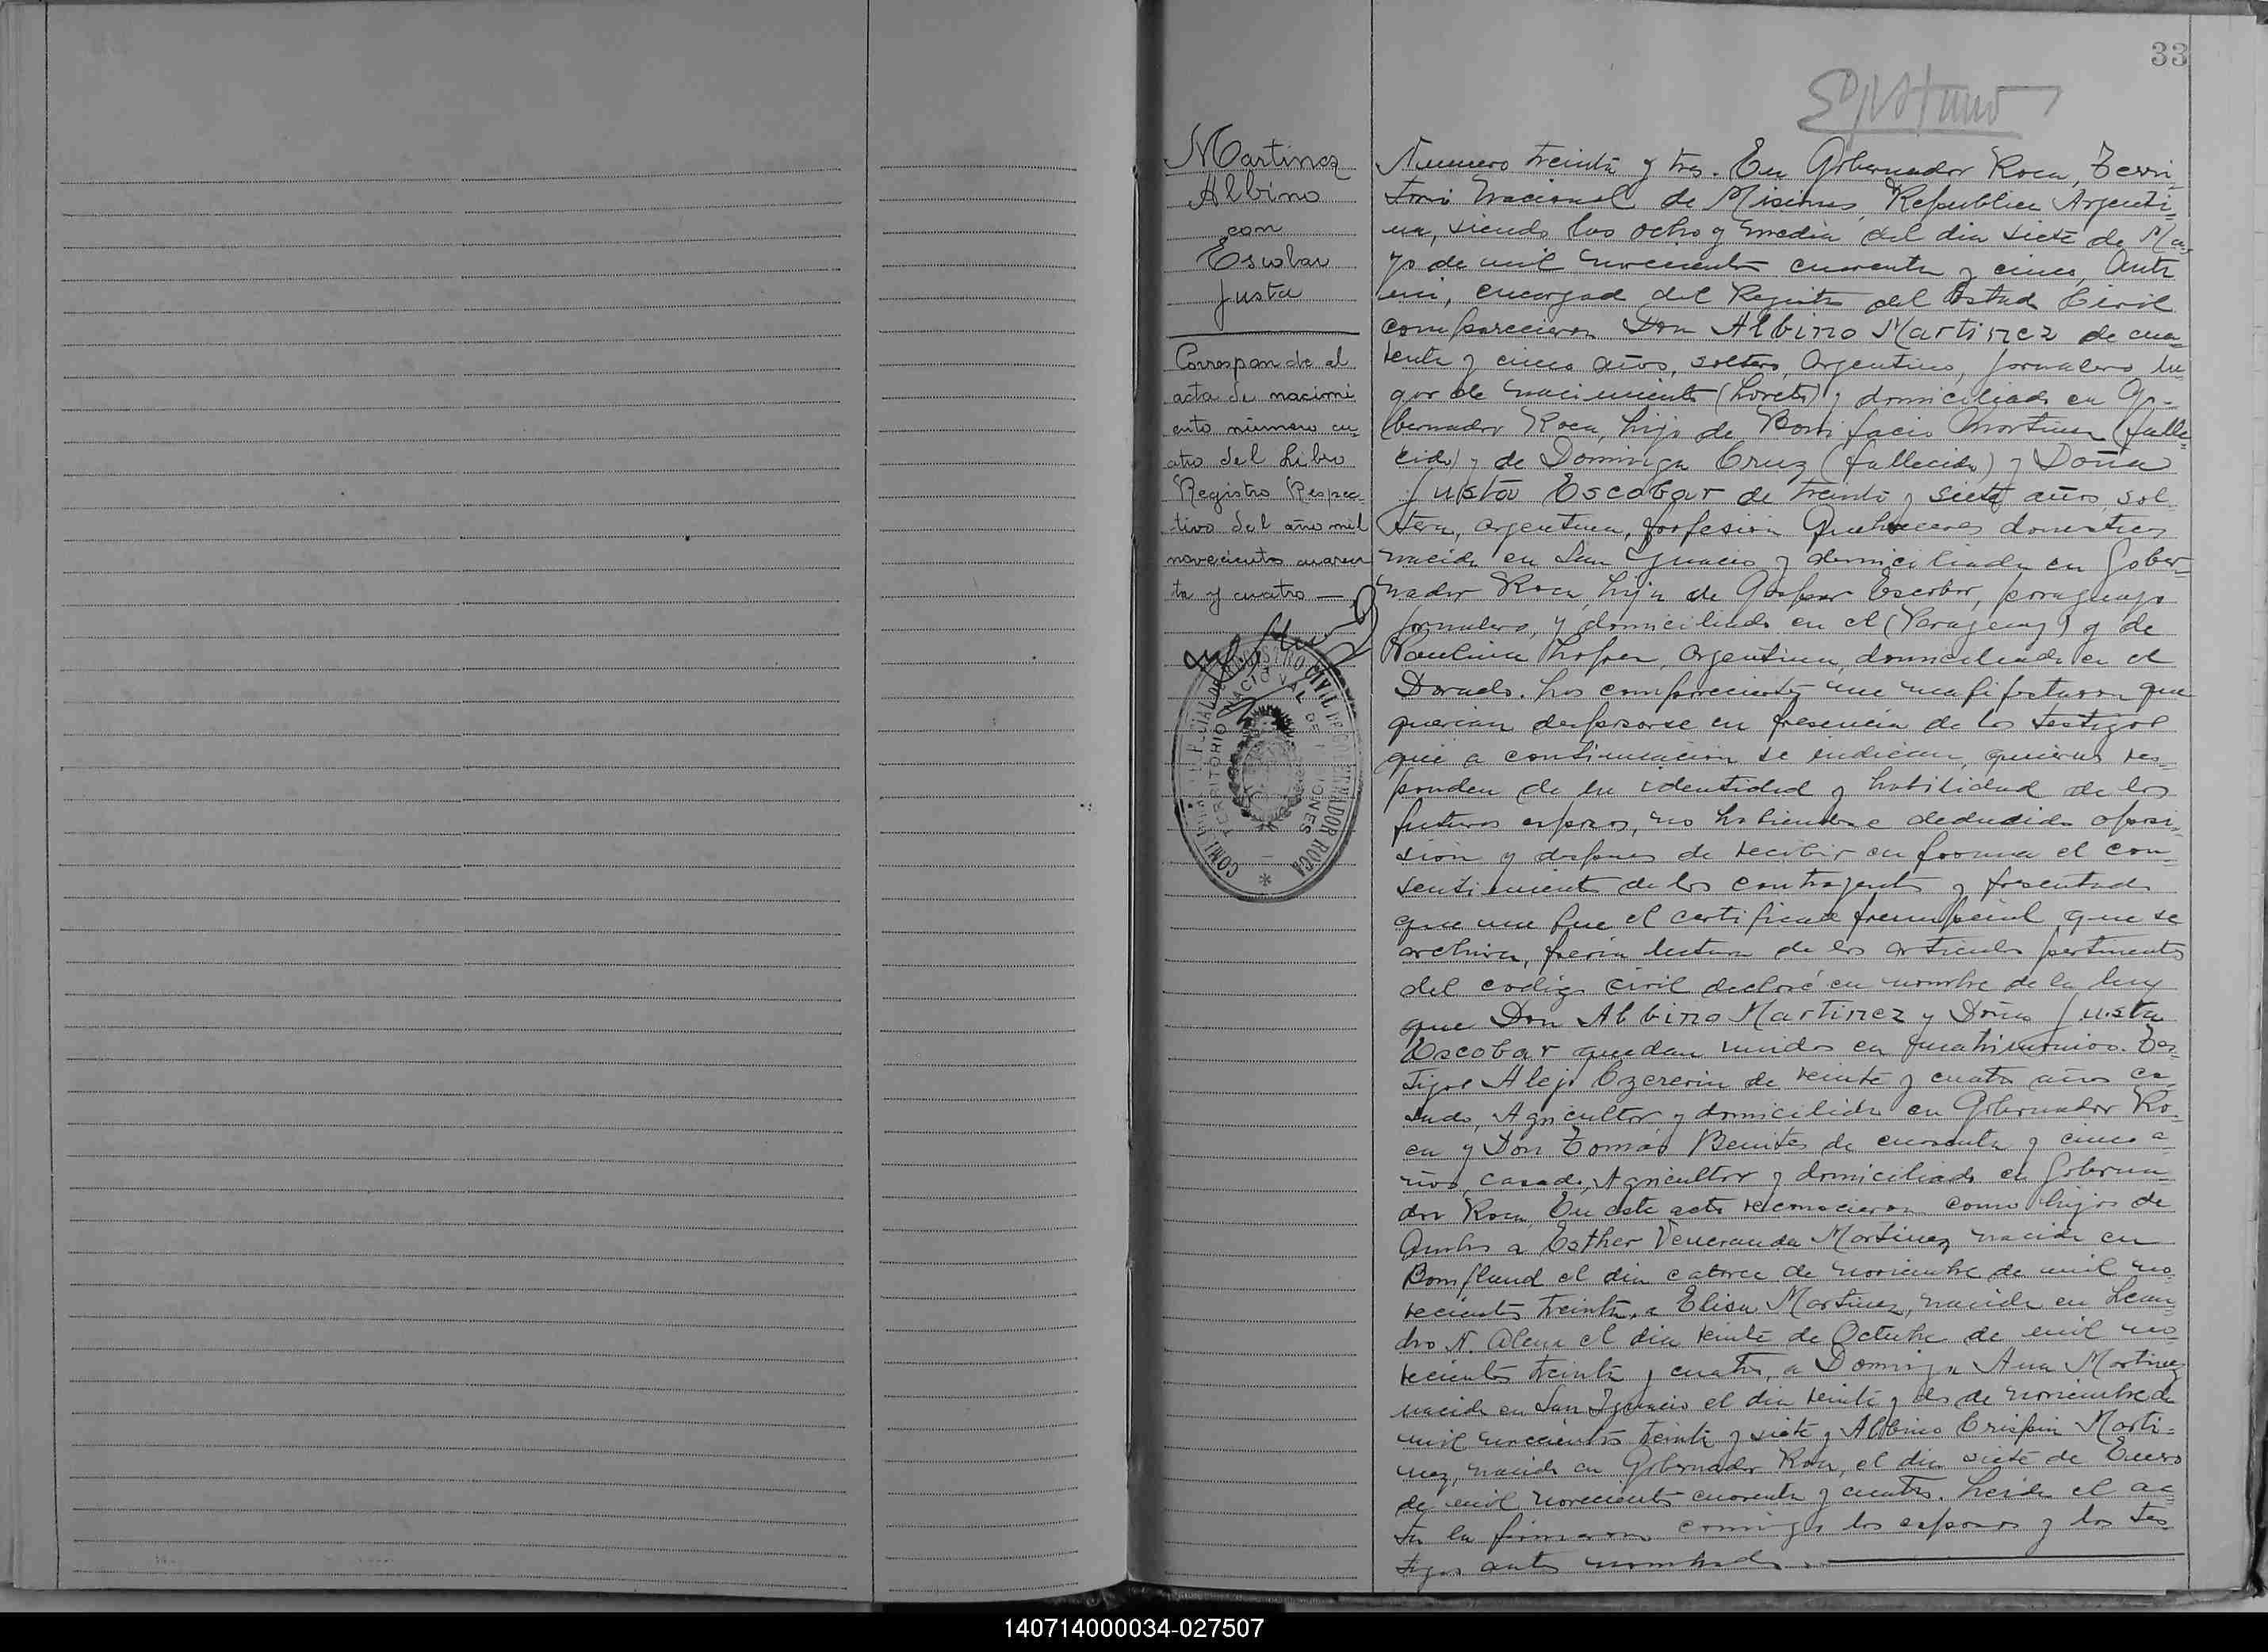 33
Martinez
Albino
con
Escobar
Justa
Corresponde al
acta de nacimi
ento número cu-
atro del Libro
Registro Respec-
tivo del año mil
novecientos cuaren
ta y cuatro —
REGISTRO CIVIL DE GOBERNADOR ROCA
TERRITORIO NACIONAL DE MISIONES
Numero treinta y tres. En Gobernador Roca, Terri-
torio Nacional de Misiones, Republica Argenti-
na, siendo las ocho y media del dia siete de Ma-
yo de mil novecientos cuarenta y cinco, Ante
mi, encargado del Registro del Estado Civil
comparecieron Don Albino Martinez de cua-
renta y cinco años, soltero, Argentino, jornalero lu-
gar de nacimiento (Loreto) y domiciliado en Go-
bernador Roca, hijo de Bonifacio Martinez (falle-
cido) y de Dominga Cruz (fallecida) y Doña
Justa Escobar de treinta y siete años, sol-
tera, argentina, profesion Quehaceres domesticos
nacida en San Ignacio y domiciliada en Gober-
nador Roca, hija de Gaspar Escobar, paraguayo
jornalero, y domiciliado en el (Paraguay) y de
Paulina Lopez, Argentina, domiciliada en el
Dorado. Los comparecientes me manifestaron que
querian desposarse en presencia de los testigos
que a continuacion se indican, quienes res-
ponden de la identidad y habilidad de los
futuros esposos, no habiendose deducido oposi-
sion y despues de recibir en forma el con-
sentimiento de los contrayentes y presentado
que me fue el certificado prenupcial que se
archiva, previa lectura de los articulos pertinentes
del codigo civil declaré en nombre de la ley
que Don Albino Martinez y Doña Justa
Escobar quedan unidos en matrimonio. Tes-
tigos Alejo de veinte y cuatro años ca-
sado, Agricultor y domiciliado en Gobernador Ro-
ca y Don Tomás Benites de cuarenta y cinco a-
ños, casado, Agricultor y domiciliado en Goberna-
dor Roca. En este acto reconocieron como hijos de
Ambos a Esther Veneranda Martinez nacida en
Bompland el dia catorce de noviembre de mil no-
vecientos treinta, a Elisa Martinez, nacida en Lean-
dro N. Alem el dia veinte de Octubre de mil no-
vecientos treinta y cuatro, a Dominga Ana Martinez
nacida en San Ignacio el dia veinte y dos de noviembre de
mil novecientos treinta y siete y Albino Crispin Marti-
nez, nacido en Gobernador Roca, el dia siete de Enero
de mil novecientos cuarenta y cuatro. Leida el ac-
ta la firmaron conmigo los esposos y los tes-
tigos antes nombrados. —
140714000034-027507